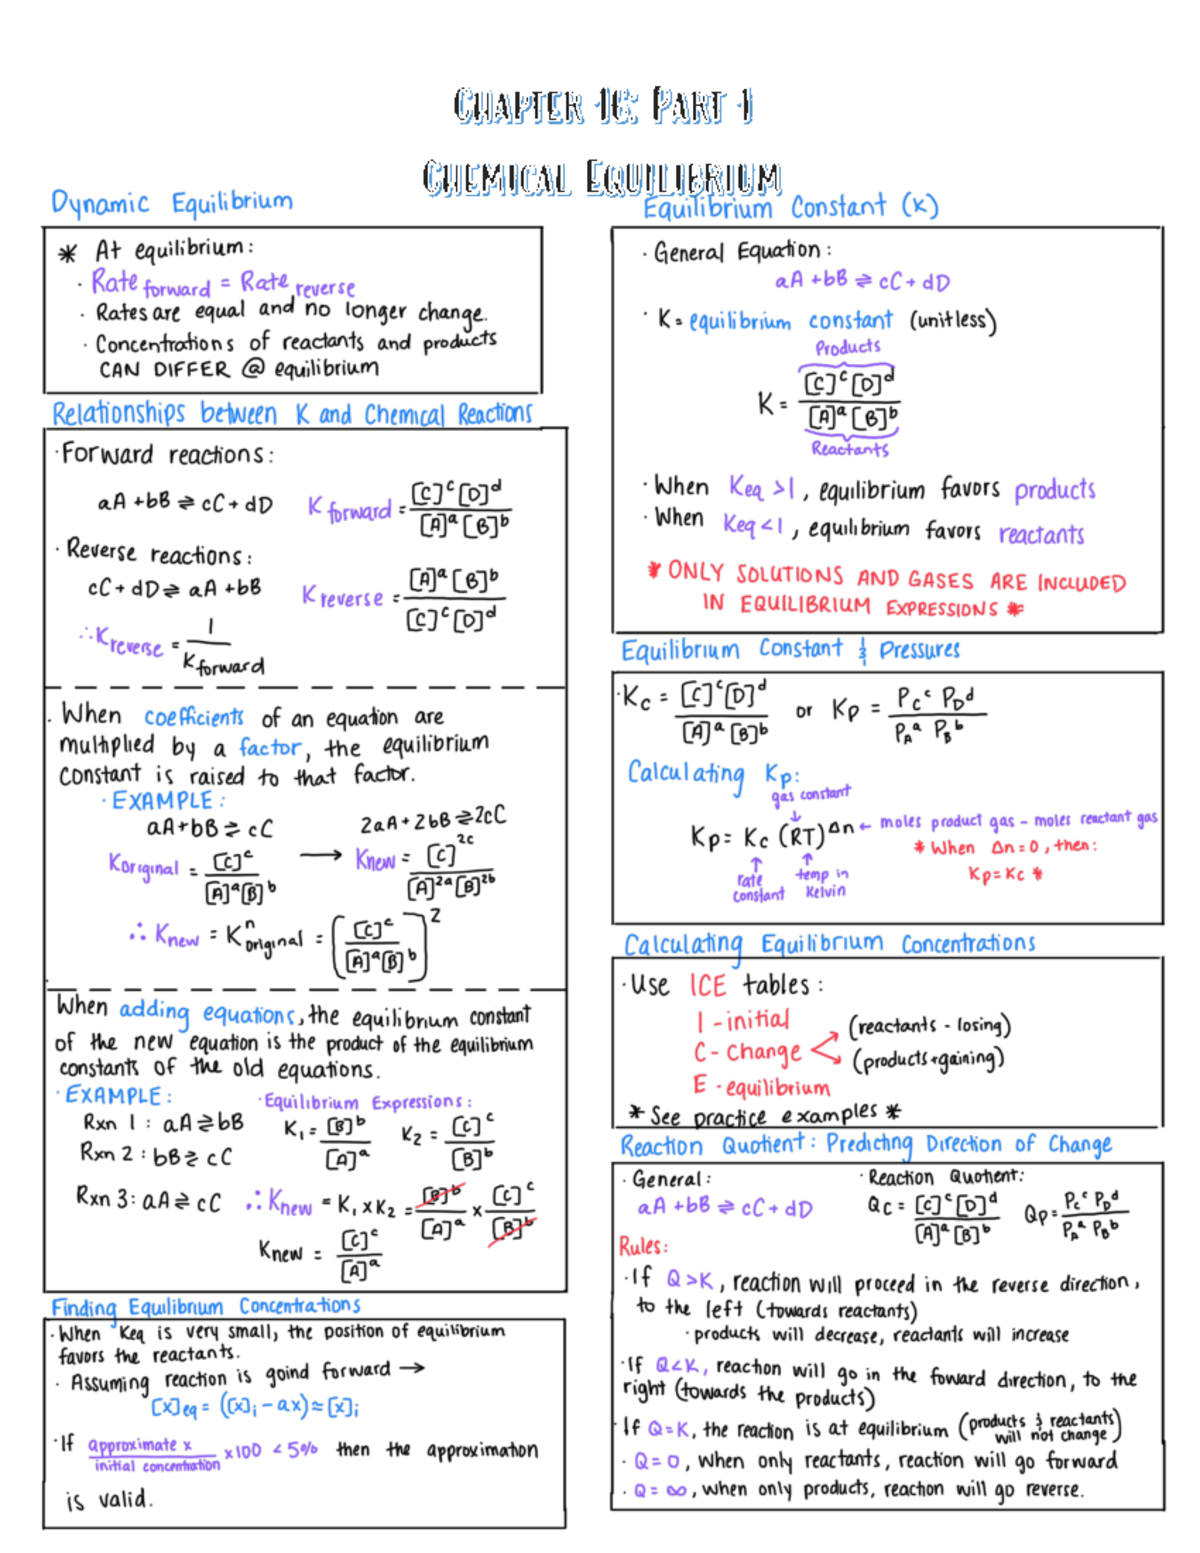 Chapter 16: Part 1
Chemical Equilibrium
Dynamic Equilibrium
* At equilibrium:
· Rate forward = Rate reverse
· Rates are equal and no longer change.
· Concentrations of reactants and products
CAN DIFFER @ equilibrium
Relationships between K and Chemical Reactions
· Forward reactions:
aA + bB ⇌ cC + dD K forward = [C]^c [D]^d / [A]^a [B]^b
· Reverse reactions:
cC + dD ⇌ aA + bB K reverse = [A]^a [B]^b / [C]^c [D]^d
∴ K reverse = 1 / K forward
· When coefficients of an equation are
multiplied by a factor, the equilibrium
constant is raised to that factor.
· EXAMPLE:
aA + bB ⇌ cC 2aA + 2bB ⇌ 2cC
K original = [C]^c / [A]^a [B]^b → K new = [C]^2c / [A]^2a [B]^2b
∴ K new = K^n original = ([C]^c / [A]^a [B]^b)^2
When adding equations, the equilibrium constant
of the new equation is the product of the equilibrium
constants of the old equations.
· EXAMPLE: · Equilibrium Expressions:
Rxn 1: aA ⇌ bB K₁ = [B]^b / [A]^a K₂ = [C]^c / [B]^b
Rxn 2: bB ⇌ cC
Rxn 3: aA ⇌ cC ∴ K new = K₁ x K₂ = [B]^b / [A]^a x [C]^c / [B]^b
K new = [C]^c / [A]^a
Finding Equilibrium Concentrations
· When Keq is very small, the position of equilibrium
favors the reactants.
· Assuming reaction is goind forward →
[x]eq = ([x]i - ax) ≈ [x]i
· If approximate x / initial concentration x100 < 5% then the approximation
is valid.
Equilibrium Constant (K)
· General Equation:
aA + bB ⇌ cC + dD
· K = equilibrium constant (unitless)
Products
K = [C]^c [D]^d / [A]^a [B]^b
Reactants
· When Keq > 1, equilibrium favors products
· When Keq < 1, equilibrium favors reactants
* ONLY SOLUTIONS AND GASES ARE INCLUDED
IN EQUILIBRIUM EXPRESSIONS *
Equilibrium Constant & Pressures
· Kc = [C]^c [D]^d / [A]^a [B]^b or Kp = Pc^c PD^d / PA^a PB^b
Calculating Kp:
gas constant
Kp = Kc (RT)^Δn ← moles product gas - moles reactant gas
* When Δn = 0, then:
Kp = Kc *
rate constant
temp in Kelvin
Calculating Equilibrium Concentrations
· Use ICE tables:
I - initial
(reactants - losing)
C - change
(products + gaining)
E - equilibrium
* See practice examples *
Reaction Quotient: Predicting Direction of Change
· General: · Reaction Quotient:
aA + bB ⇌ cC + dD Qc = [C]^c [D]^d / [A]^a [B]^b Qp = Pc^c PD^d / PA^a PB^b
Rules:
· If Q > K, reaction will proceed in the reverse direction,
to the left (towards reactants)
· products will decrease, reactants will increase
· If Q < K, reaction will go in the foward direction, to the
right (towards the products)
· If Q = K, the reaction is at equilibrium (products & reactants will not change)
· Q = 0, when only reactants, reaction will go forward
· Q = ∞, when only products, reaction will go reverse.